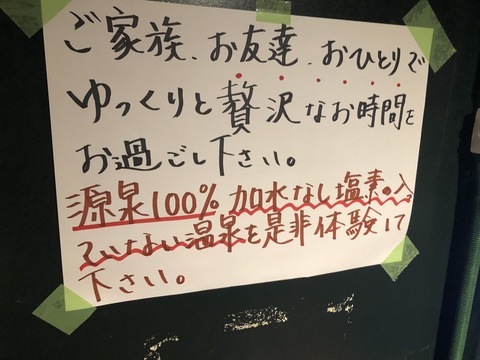 ご家族、お友達、おひとりで
ゆっくりと贅沢なお時間を
お過ごし下さい。
源泉100% 加水なし塩素の入っ
ていない温泉を是非体験して
下さい。